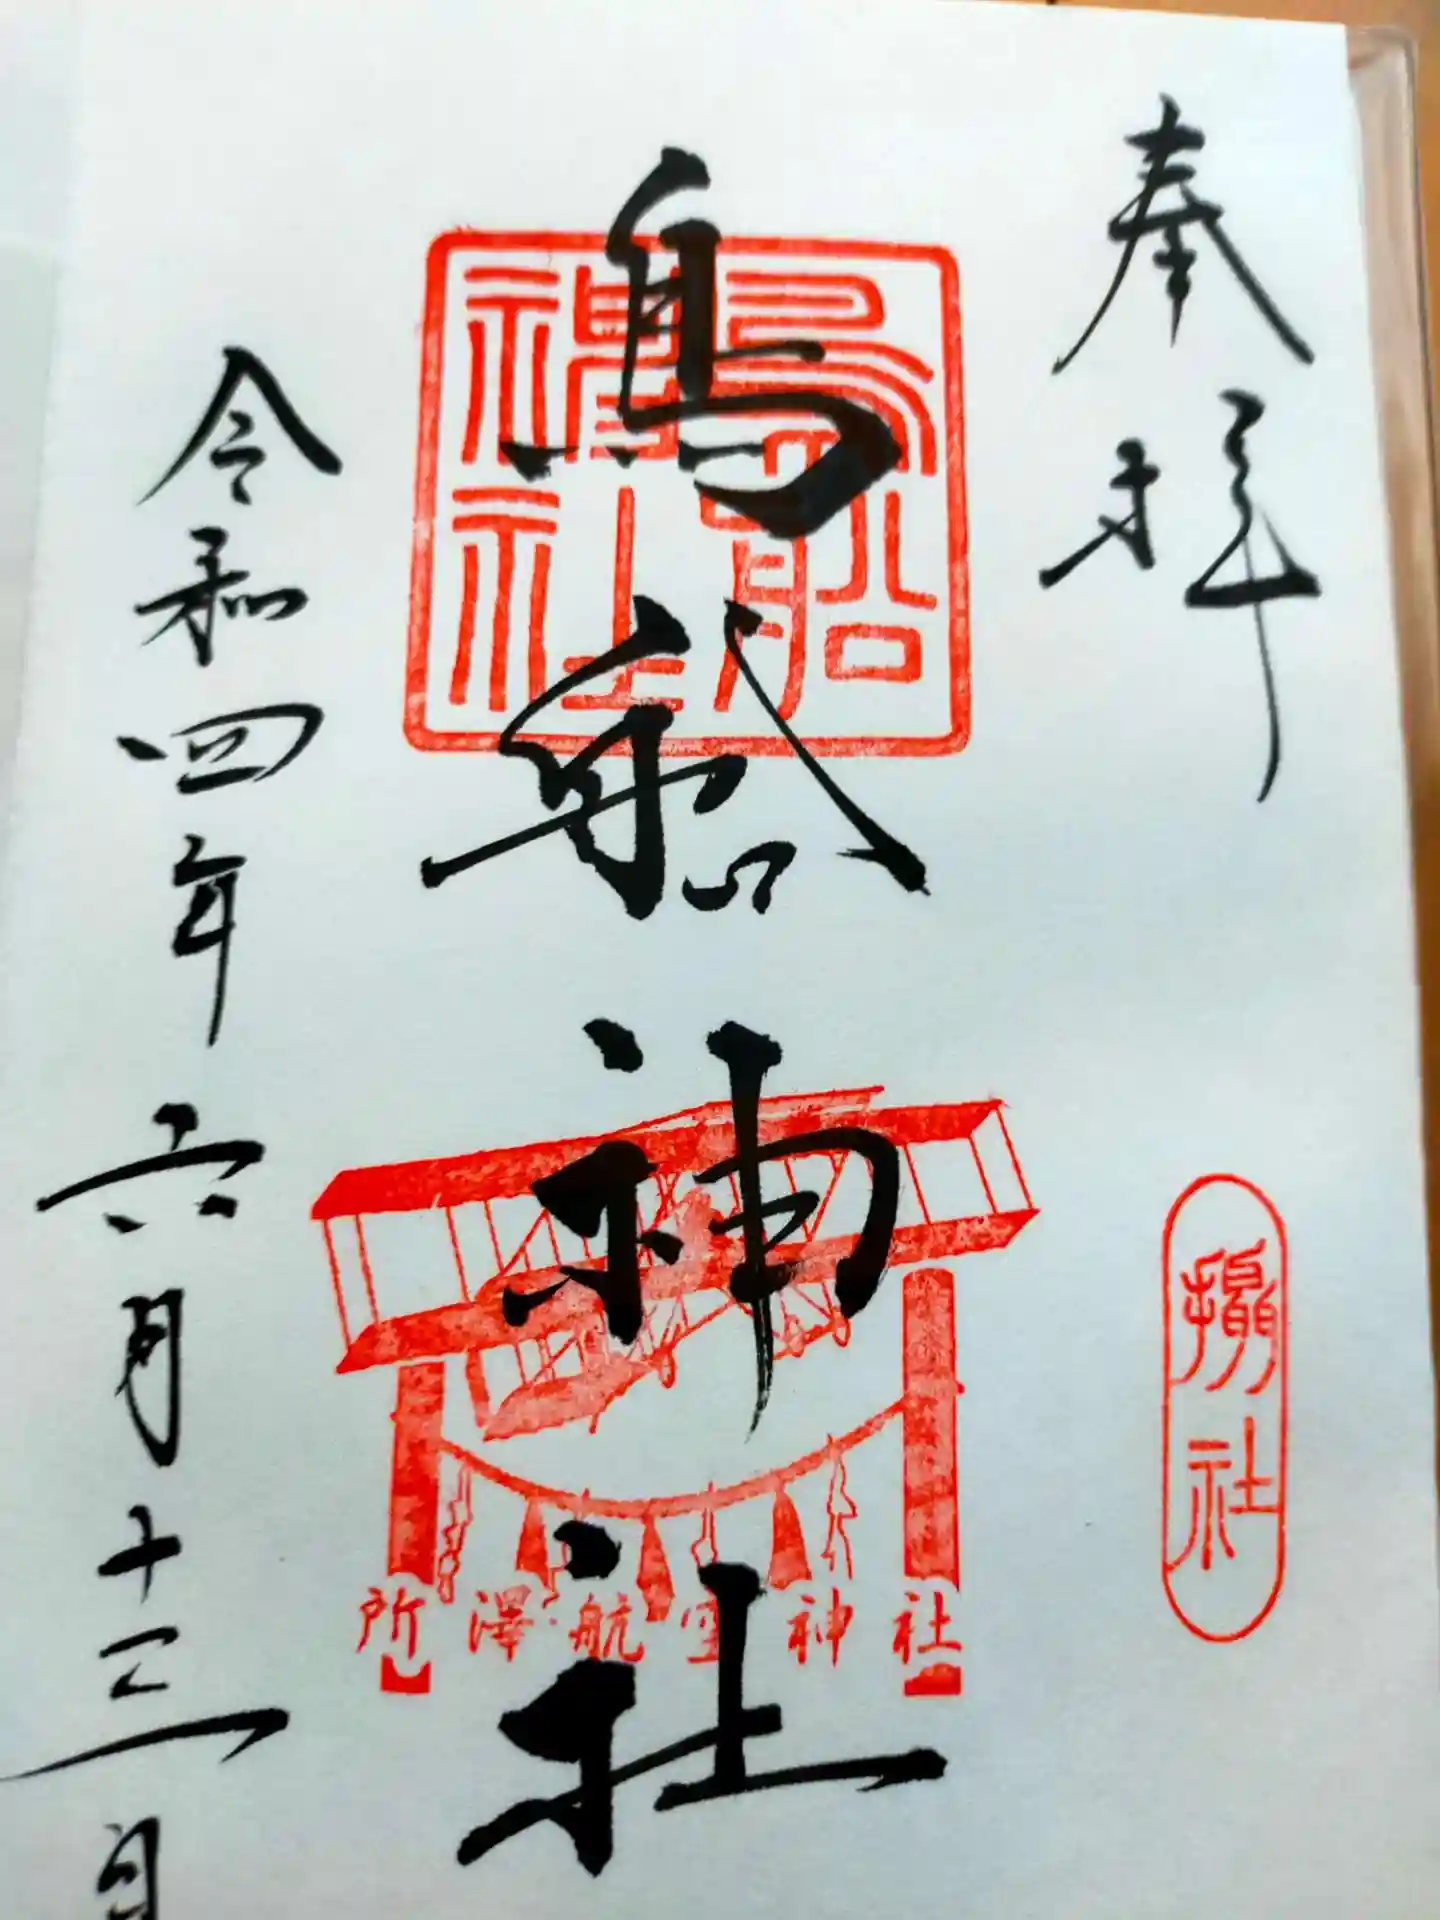 奉拝
攝社
鳥船神社
鳥船
神社
所澤航空神社
令和四年六月十三日